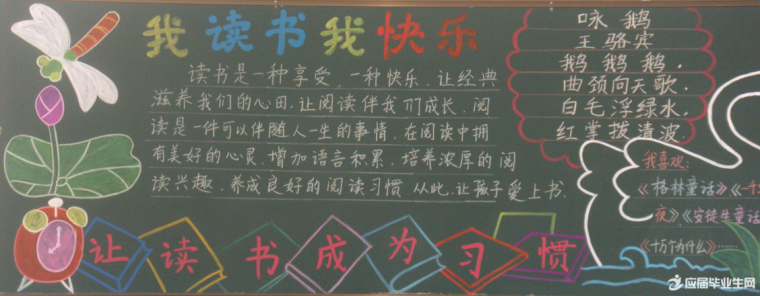 我读书我快乐
读书是一种享受，一种快乐．让经典
滋养我们的心田．让阅读伴我们成长．阅
读是一件可以伴随人一生的事情．在阅读中拥
有美好的心灵．增加语言积累．培养浓厚的阅
读兴趣．养成良好的阅读习惯 从此．让孩子爱上书．
咏 鹅
王 骆宾
鹅 鹅 鹅．
曲颈向天歌．
白毛浮绿水．
红掌拨清波．
我喜欢：
《格林童话》《一千
夜》《安徒生童话
《十万个为什么》……
让读书成为习惯
应届毕业生网